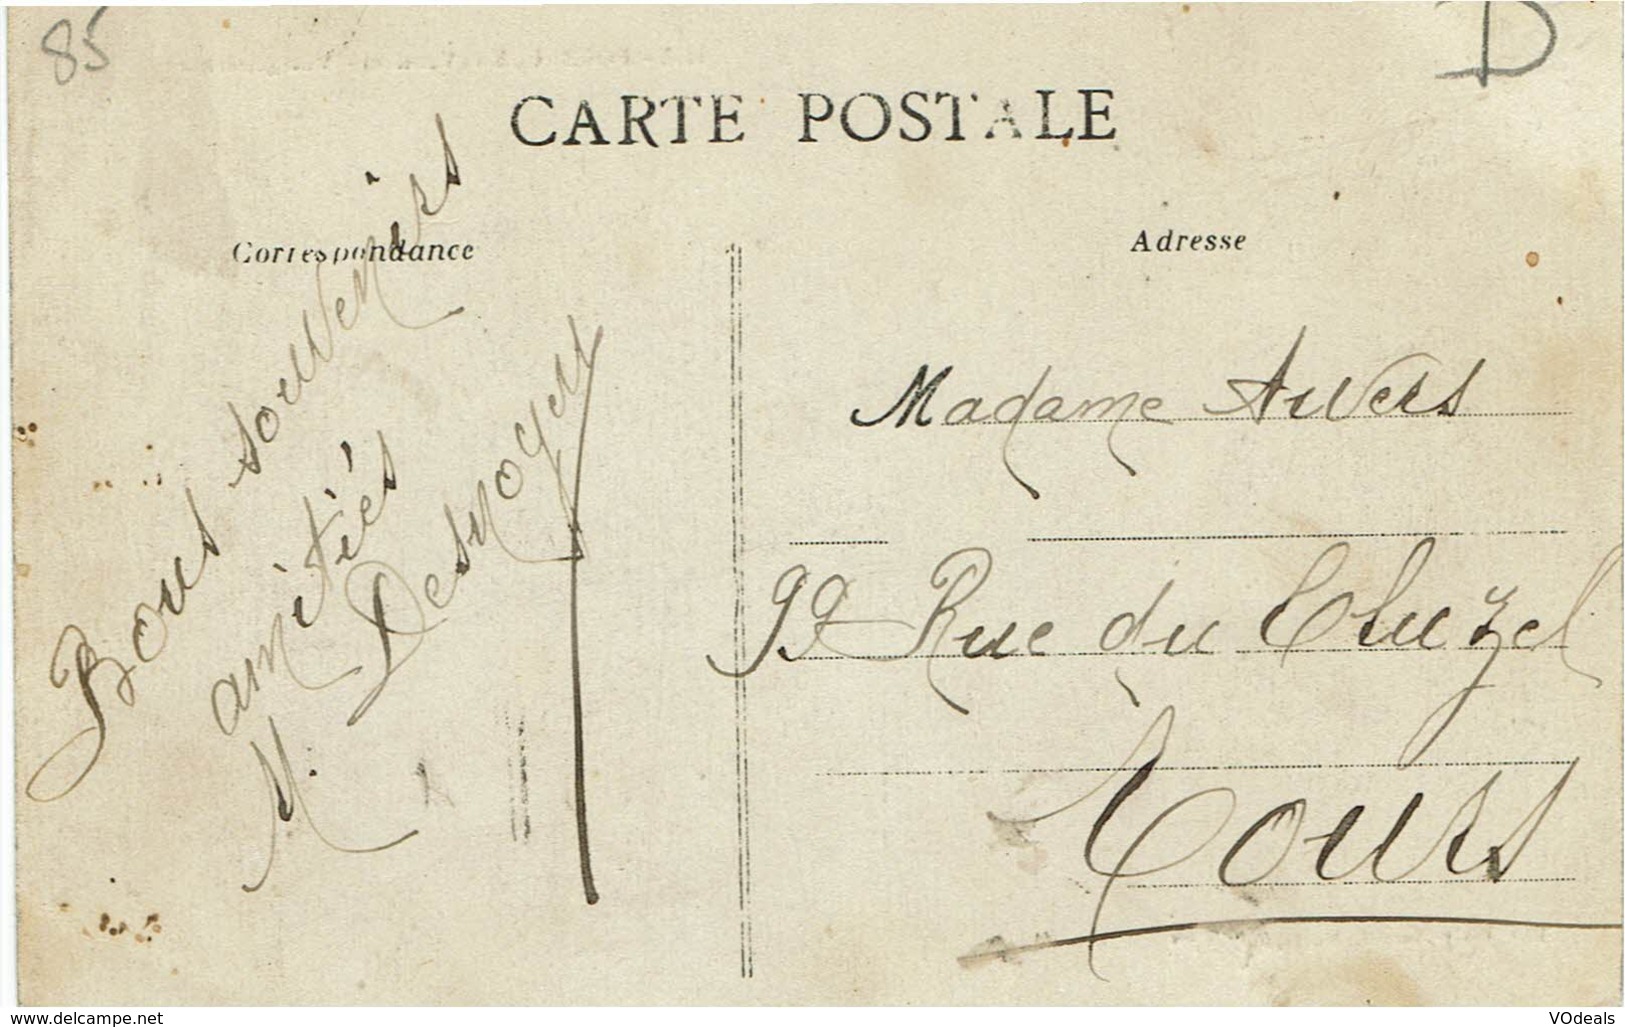 85
D
CARTE POSTALE
Correspondance
Adresse
Bons souvenirs
amitiés
M. Desnoyers
Madame Auvers
99 Rue du Cluzel
Tours
www.delcampe.net
VOdeals